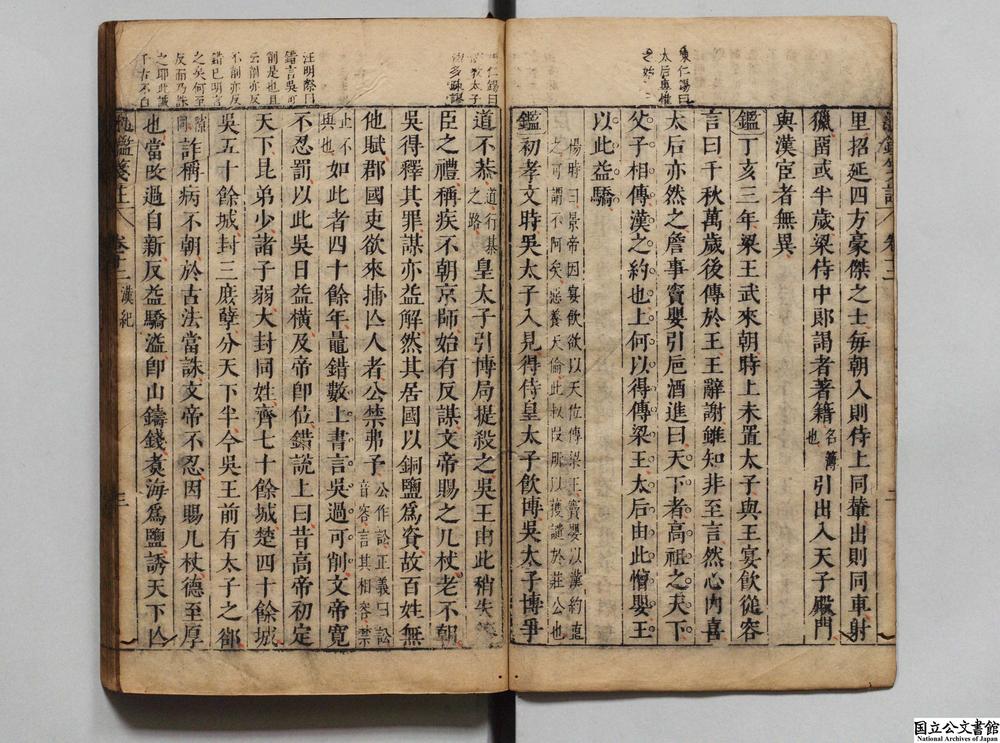 陳仁錫曰
太后
里招延四方豪傑之士每朝入則侍上同輦出則同車射
獵留或半歲梁侍中郎謁者著籍名簿也引出入天子殿門
與漢宦者無異
鑑丁亥三年梁王武來朝時上未置太子與王宴飲從容
言曰千秋萬歲後傳於王王辭謝雖知非至言然心內喜
太后亦然之詹事竇嬰引巵酒進曰天下者高祖之天下
父子相傳漢之約也上何以得傳梁王太后由此憎嬰王
以此益驕
楊時曰景帝因宴飲欲以天位傳梁王竇嬰以漢約直
之可謂不阿矣惡養天倫此叔段所以獲譏於莊公也
鑑初孝文時吳太子入見得侍皇太子飲博吳太子博爭
仁錫曰
道不恭道行棊之路皇太子引博局提殺之吳王由此稍失藩
臣之禮稱疾不朝京師始有反謀文帝賜之几杖老不朝
吳得釋其罪謀亦益解然其居國以銅鹽爲資故百姓無
他賦郡國吏欲來捕亾人者公禁弗予公作訟正義曰訟音容言其相容禁
止不與也如此者四十餘年鼂錯數上書言吳過可削文帝寬
不忍罰以此吳日益橫及帝卽位錯說上曰昔高帝初定
天下昆弟少諸子弱大封同姓齊七十餘城楚四十餘城
吳五十餘城封三庶孽分天下半今吳王前有太子之郤
隙同詐稱病不朝於古法當誅文帝不忍因賜几杖德至厚
也當改過自新反益驕溢卽山鑄錢煑海爲鹽誘天下亾
汪明際曰
錯言吳可
削是也且
云削亦反
不削亦反
錯已明言
之矣何至
反而乃誅
之耶此誠
千古不白
鑑箋註 卷十二 漢紀 三
国立公文書館
National Archives of Japan